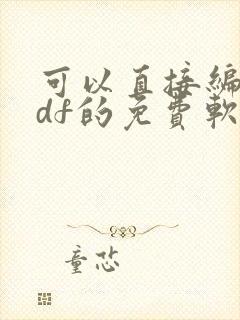 可以直接編
df的免費軟
童恣